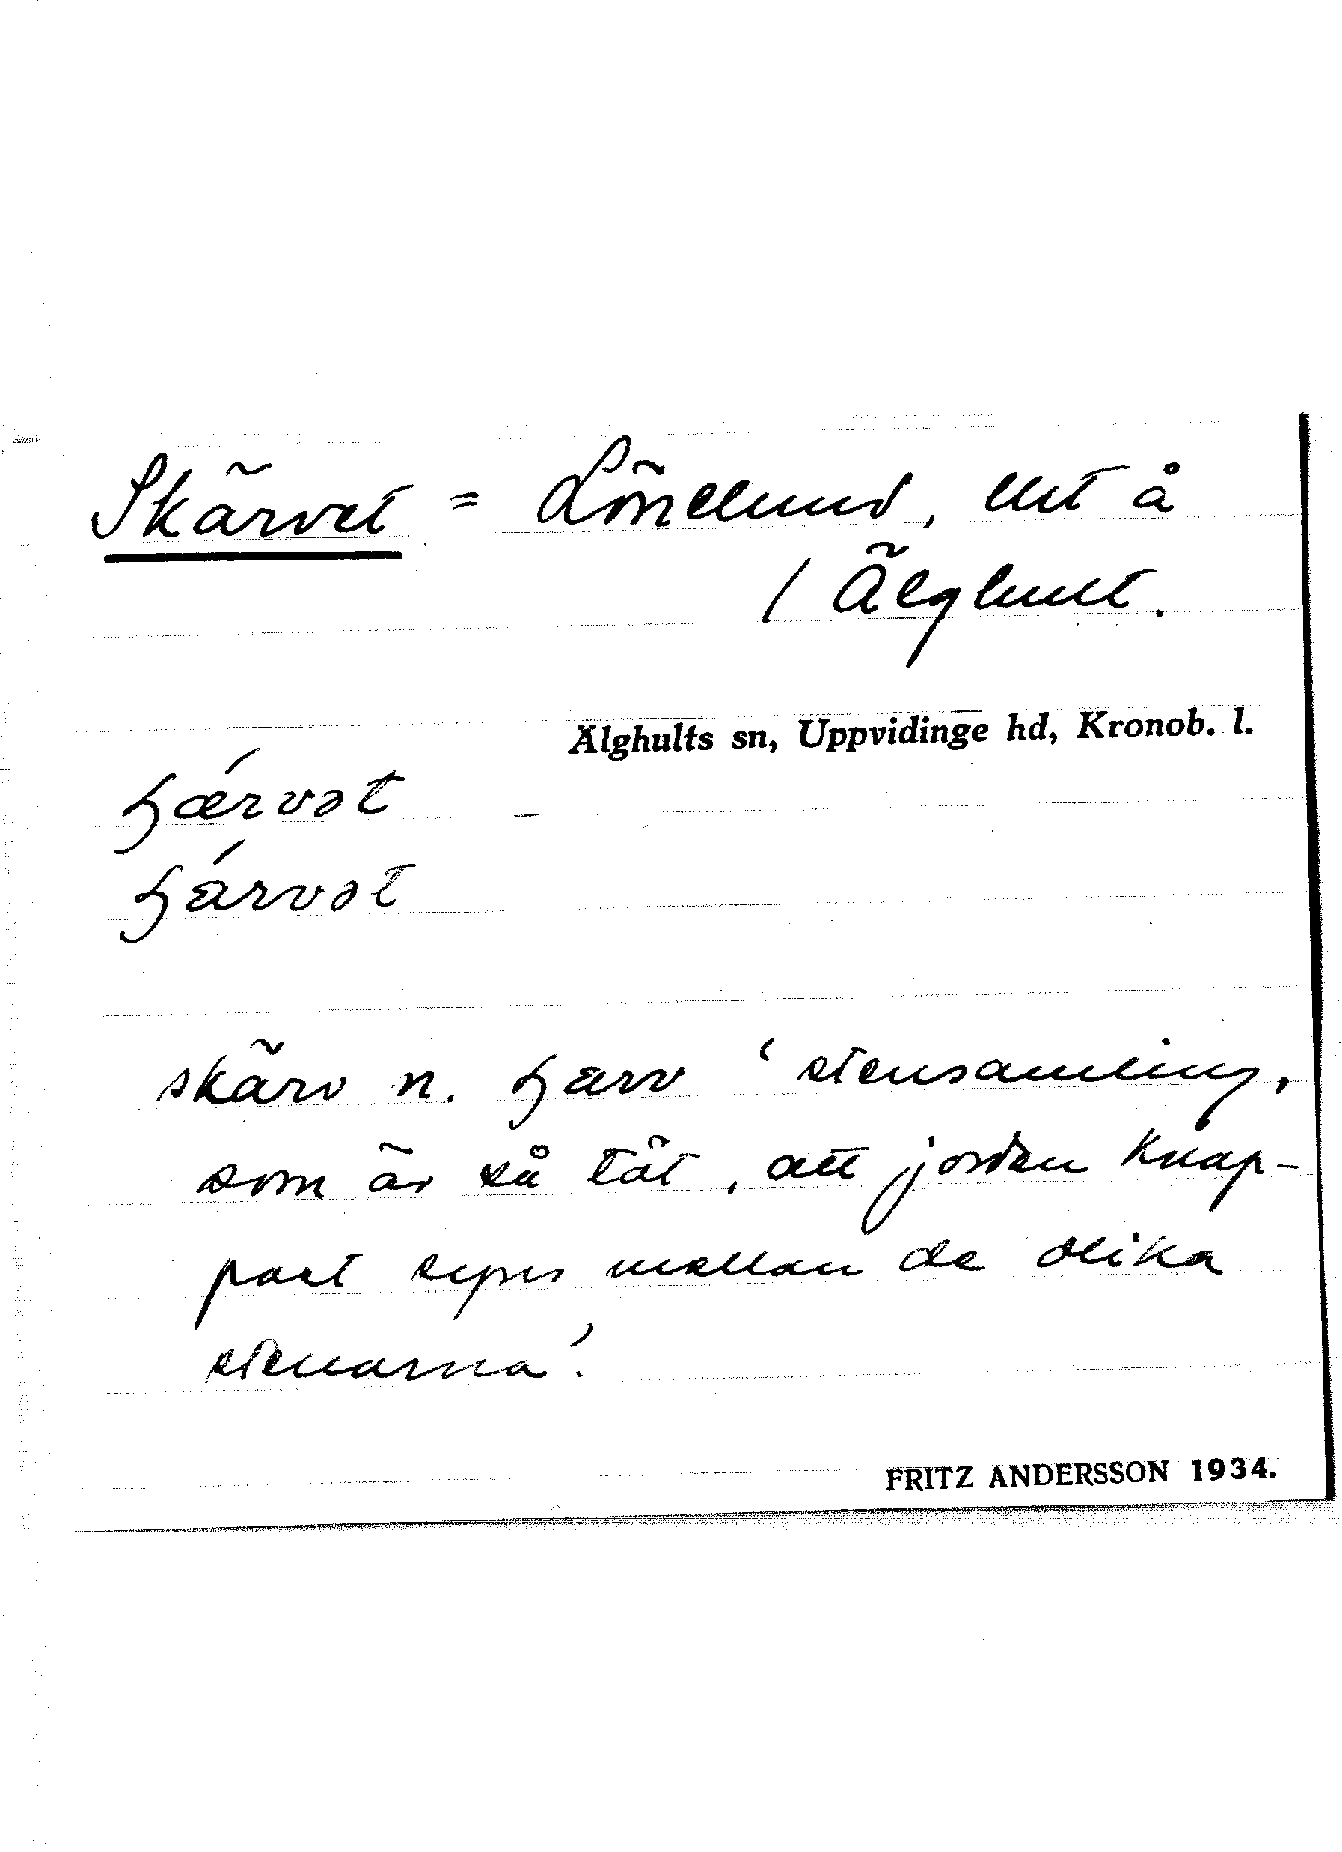 Skärvet = Lönelund, lht å
/ Älghult.
Älghults sn, Uppvidinge hd, Kronob. l.
ʃærvət
ʃarvət
skärv n. ʃarv 'stensamling,
som är så tät, att jorden knap-
past synes mellan de olika
stenarna'.
FRITZ ANDERSSON 1934.